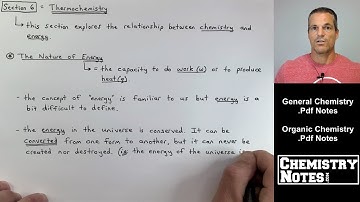 Section 6 = Thermochemistry
↳ this section explores the relationship between chemistry and
energy.
The Nature of Energy
↳ = the capacity to do work (w) or to produce
heat (q)
- the concept of "energy" is familiar to us but energy is a
bit difficult to define.
- the energy in the universe is conserved. It can be
converted from one form to another, but it can never be
created nor destroyed. (ie the energy of the universe is
General Chemistry
.Pdf Notes
Organic Chemistry
.Pdf Notes
CHEMISTRY
NOTES
.COM